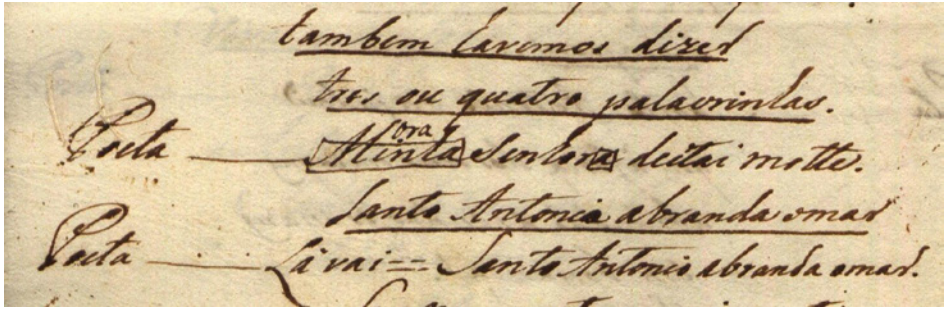 tambem havemos dizer
tres ou quatro palavrinhas.
ora
Poeta — Minha Senhora deitai motte.
Santo Antonio abranda omar
Poeta — Lá vai == Santo Antonio abranda omar.